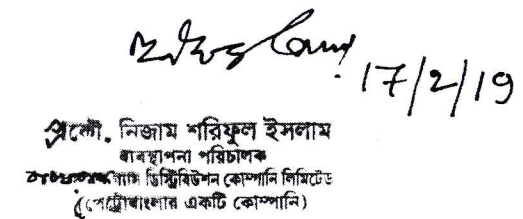 17/2/19
প্রকৌ. নিজাম শরিফুল ইসলাম
ব্যবস্থাপনা পরিচালক
গ্যাস ডিস্ট্রিবিউশন কোম্পানি লিমিটেড
(পেট্রোবাংলার একটি কোম্পানি)